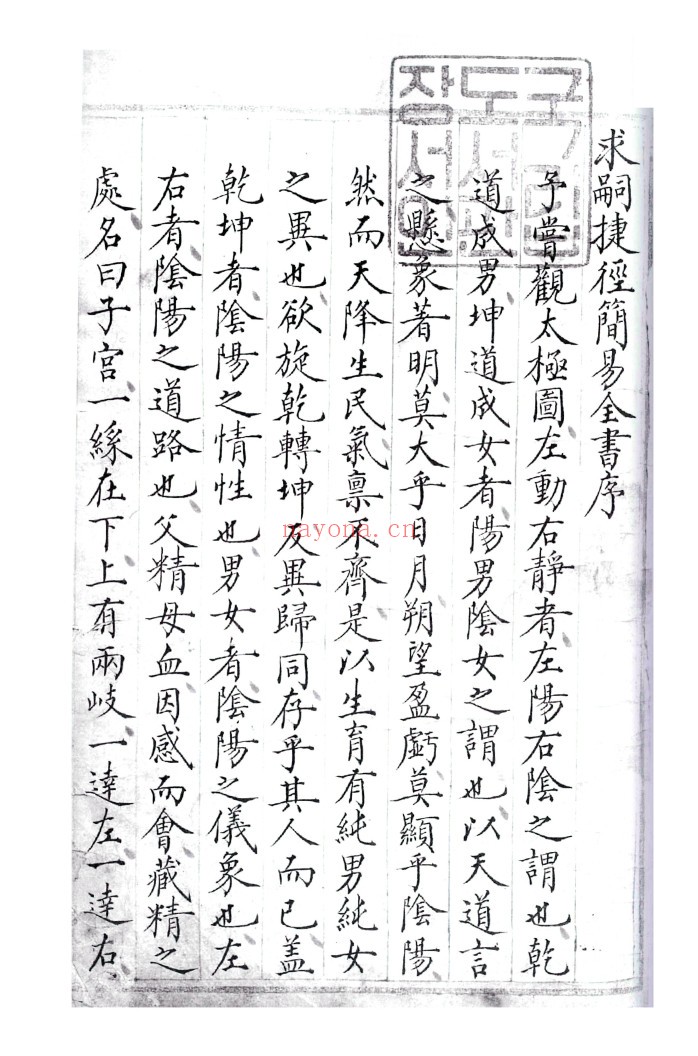 求嗣捷徑簡易全書序
予嘗觀太極圖左動右靜者左陽右陰之謂也乾
道成男坤道成女者陽男陰女之謂也以天道言
之懸象著明莫大乎日月朔望盈虧莫顯乎陰陽
然而天降生民氣禀不齊是以生育有純男純女
之異也欲旋乾轉坤反異歸同存乎其人而已盖
乾坤者陰陽之情性也男女者陰陽之儀象也左
右者陰陽之道路也父精母血因感而會藏精之
處名曰子宮一綵在下上有兩岐一達左一達右
국립
도서
장서인
nayona.cn